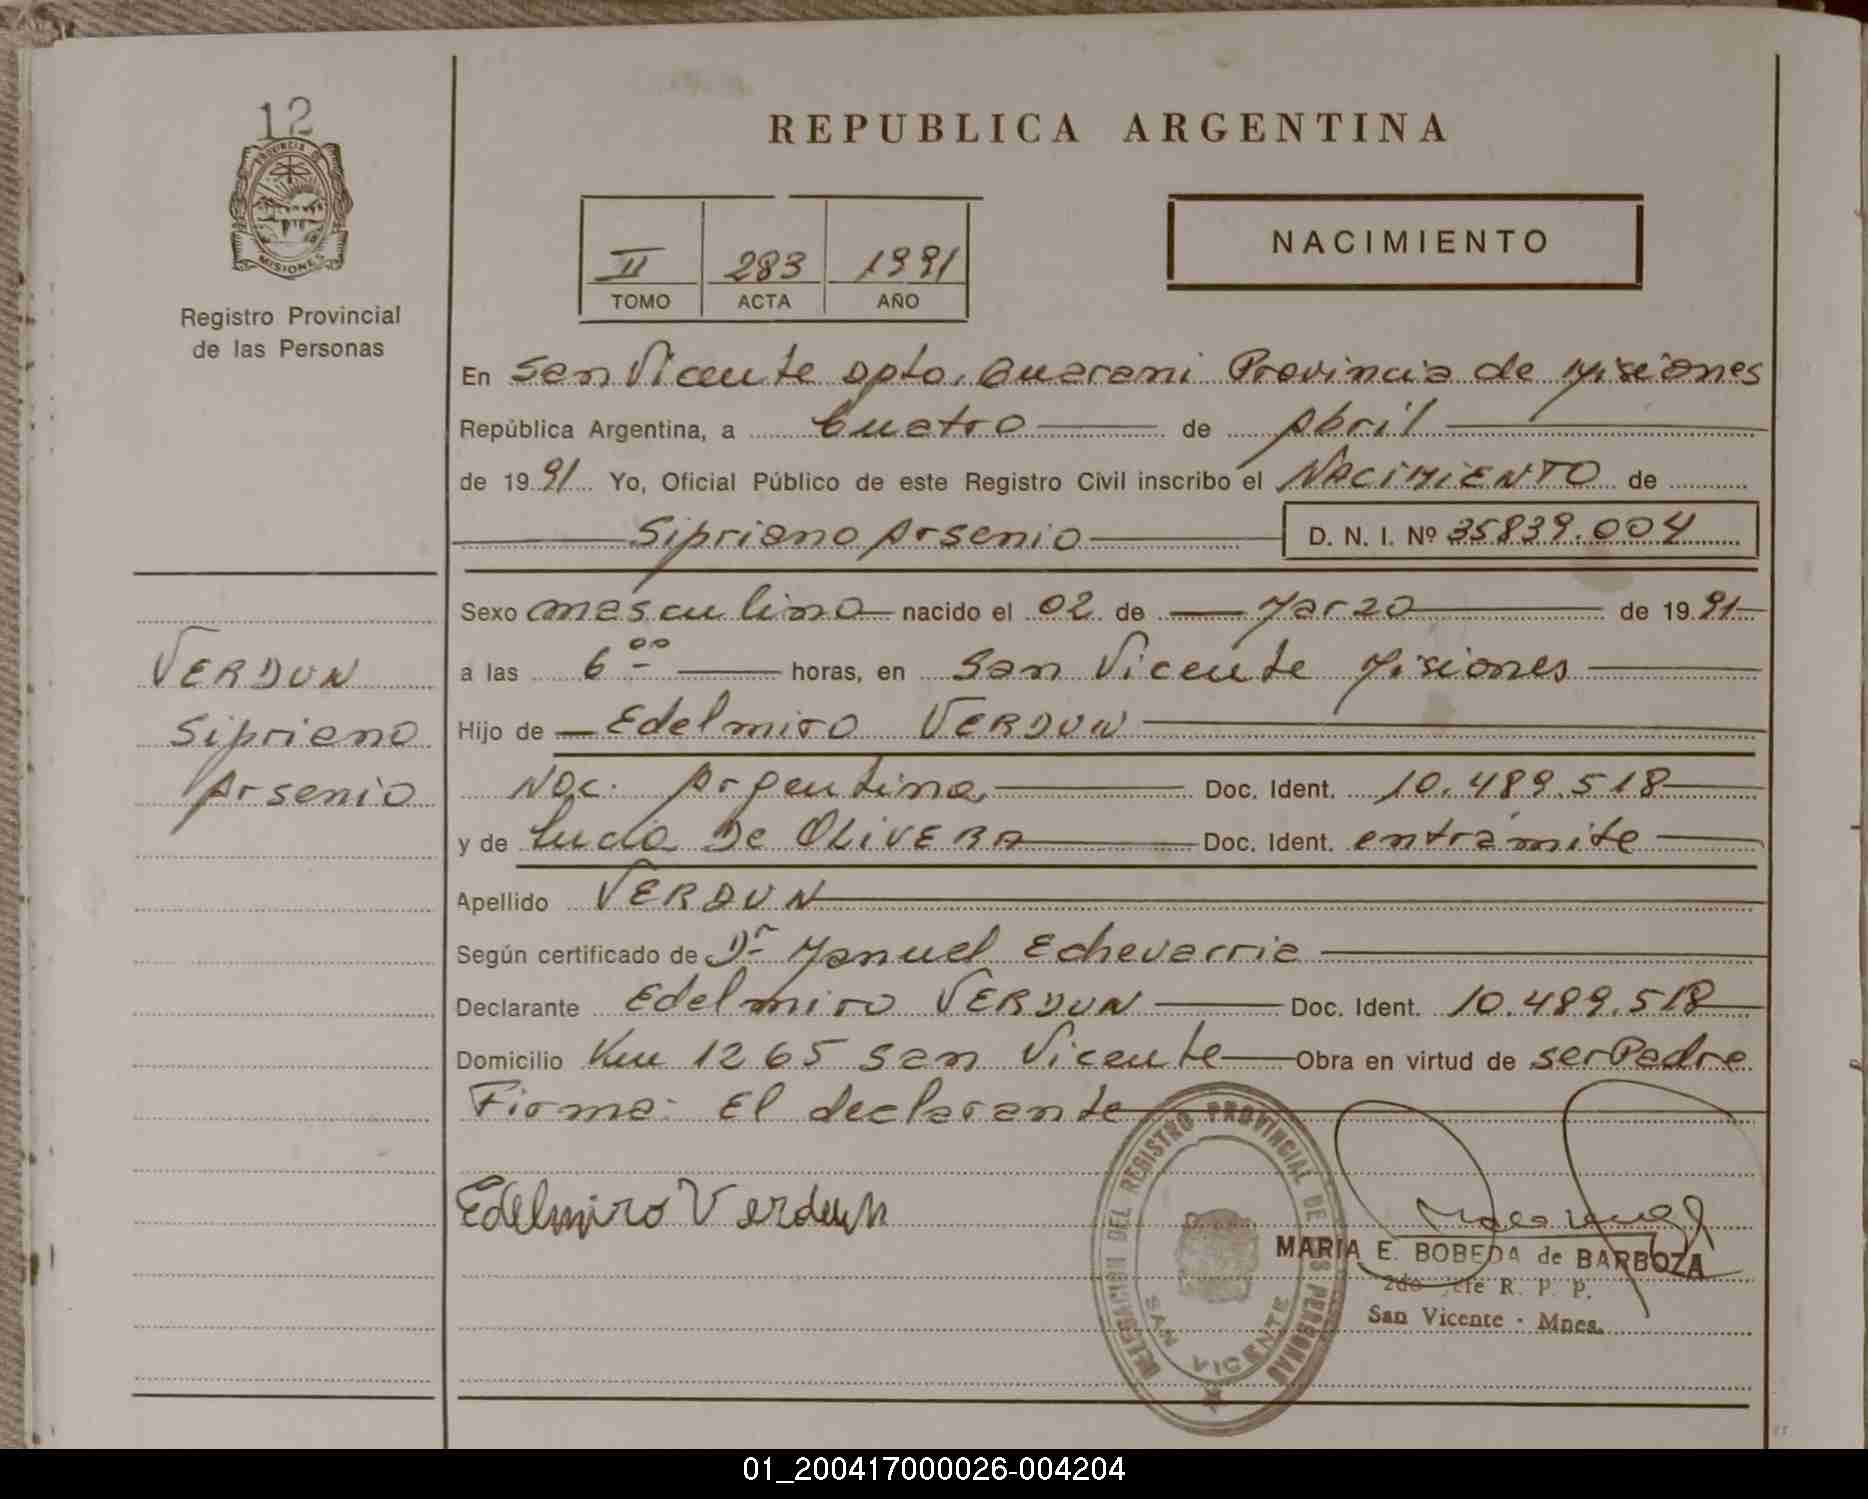 12
PROVINCIA DE
MISIONES
Registro Provincial
de las Personas
REPUBLICA ARGENTINA
II 283 1991
TOMO ACTA AÑO
NACIMIENTO
En San Vicente Dpto. Guarani Provincia de Misiones
República Argentina, a Cuatro de Abril
de 1991 Yo, Oficial Público de este Registro Civil inscribo el NACIMIENTO de
Sipriano Arsenio D. N. I. Nº 35839.004
Sexo masculino nacido el 02 de Marzo de 1991
a las 6 00 horas, en San Vicente Misiones
Hijo de Edelmiro VERDUN
Nac. Argentina, Doc. Ident. 10.489.518
y de Lucia De OLIVERA Doc. Ident. entrámite
Apellido VERDUN
Según certificado de Dr Manuel Echevarria
Declarante Edelmiro VERDUN Doc. Ident. 10.489.518
Domicilio Km 1265 San Vicente Obra en virtud de ser Padre
Firma: El declarante
VERDUN
Sipriano
Arsenio
Edelmiro Verdun
DELEGACION DEL REGISTRO PROVINCIAL DE LAS PERSONAS
SAN VICENTE
MARIA E. BOBEDA de BARBOZA
2do Jefe R. P. P.
San Vicente - Mnes.
01_200417000026-004204